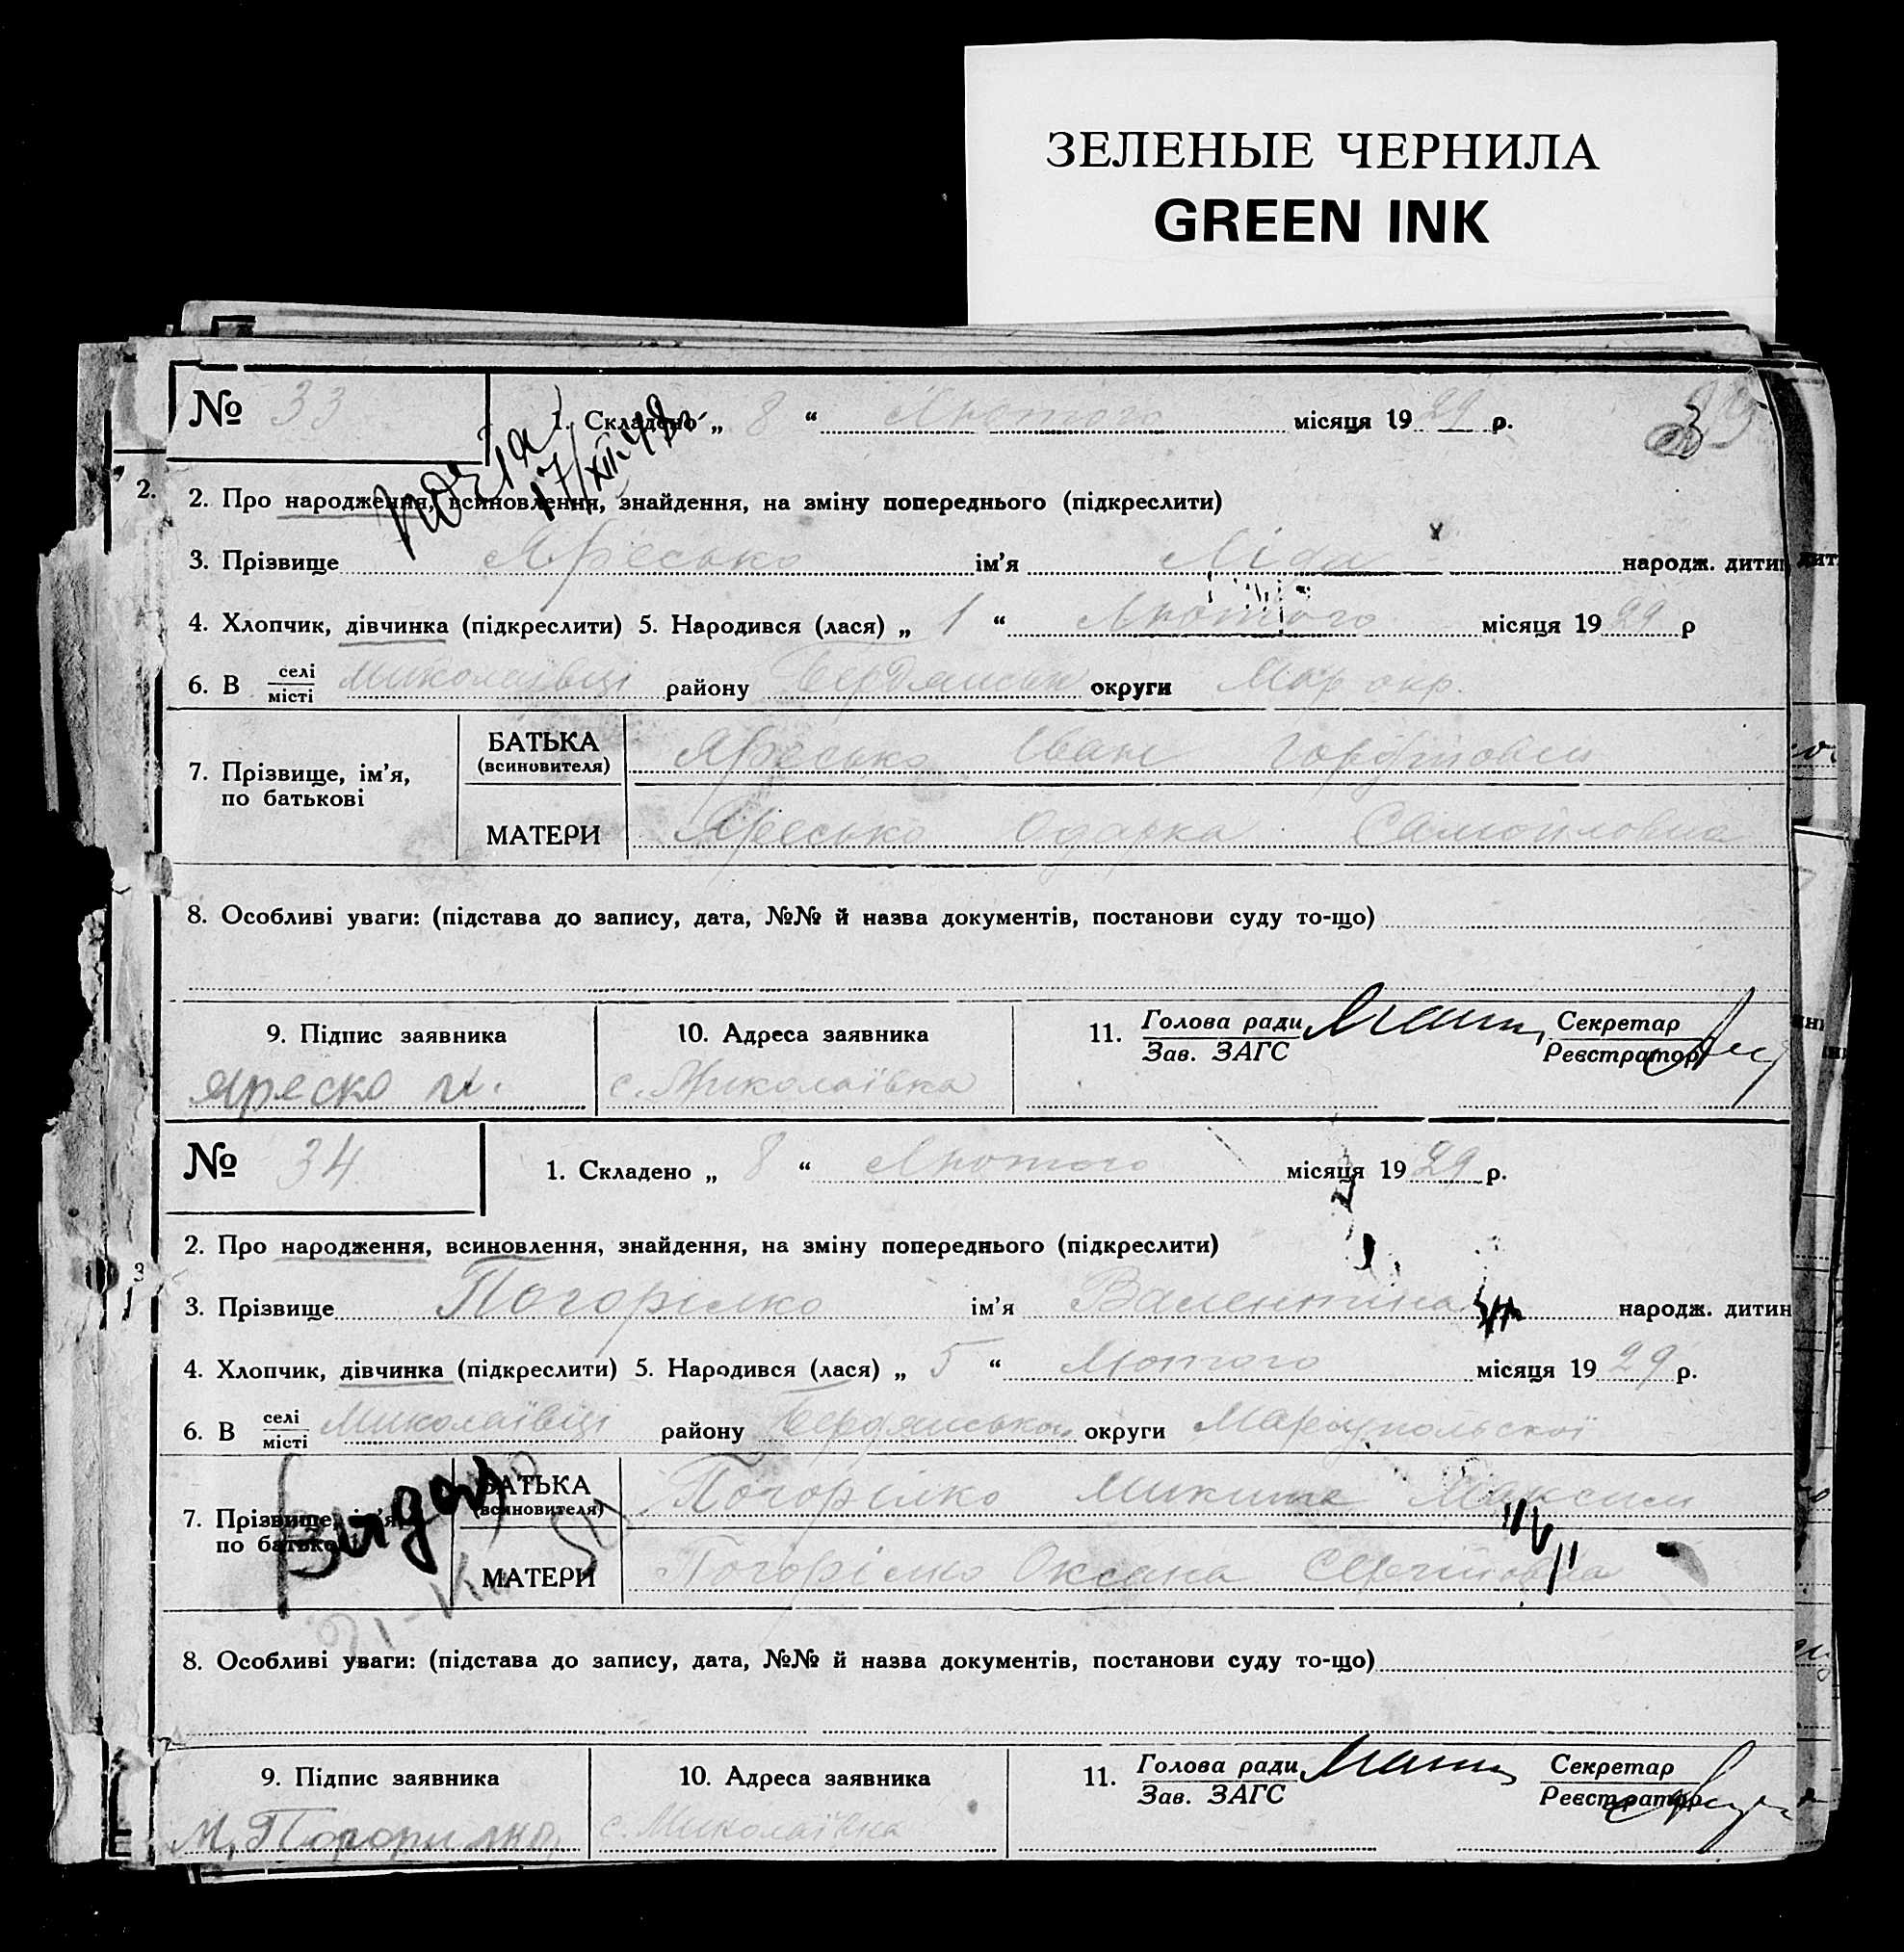 ЗЕЛЕНЫЕ ЧЕРНИЛА
GREEN INK
№ 33
1. Складено „ 8 “ Лютого місяця 1929 р.
17/XII-48
2.
2. Про народження, всиновлення, знайдення, на зміну попереднього (підкреслити)
3. Прізвище Яресько ім’я Ліда народж. дитин
4. Хлопчик, дівчинка (підкреслити) 5. Народився (лася) „ 1 “ Лютого місяця 1929 р
6. В селі/місті Миколаївці району округи Мар окр.
7. Прізвище, ім’я, по батькові
БАТЬКА (всиновителя) Яресько Іван
МАТЕРИ Яресько Одарка Самойловна
8. Особливі уваги: (підстава до запису, дата, №№ й назва документів, постанови суду то-що)
9. Підпис заявника
10. Адреса заявника
11. Голова ради/Зав. ЗАГС
Секретар/Реєстратор
Яреско
с. Миколаївка
№ 34
1. Складено „ 8 “ Лютого місяця 1929 р.
2. Про народження, всиновлення, знайдення, на зміну попереднього (підкреслити)
3
3. Прізвище Погорілко ім’я Валентина народж. дитин
4. Хлопчик, дівчинка (підкреслити) 5. Народився (лася) „ 5 “ Лютого місяця 1929 р.
6. В селі/місті Миколаївці району Бердянського округи Маріупольскої
7. Прізвище, ім’я, по батькові
БАТЬКА (всиновителя) Погорілко Микита Максим
МАТЕРИ Погорілко Оксана Сергіёвна
8. Особливі уваги: (підстава до запису, дата, №№ й назва документів, постанови суду то-що)
9. Підпис заявника
10. Адреса заявника
11. Голова ради/Зав. ЗАГС
Секретар/Реєстратор
М. Погорилко
с. Миколаївка